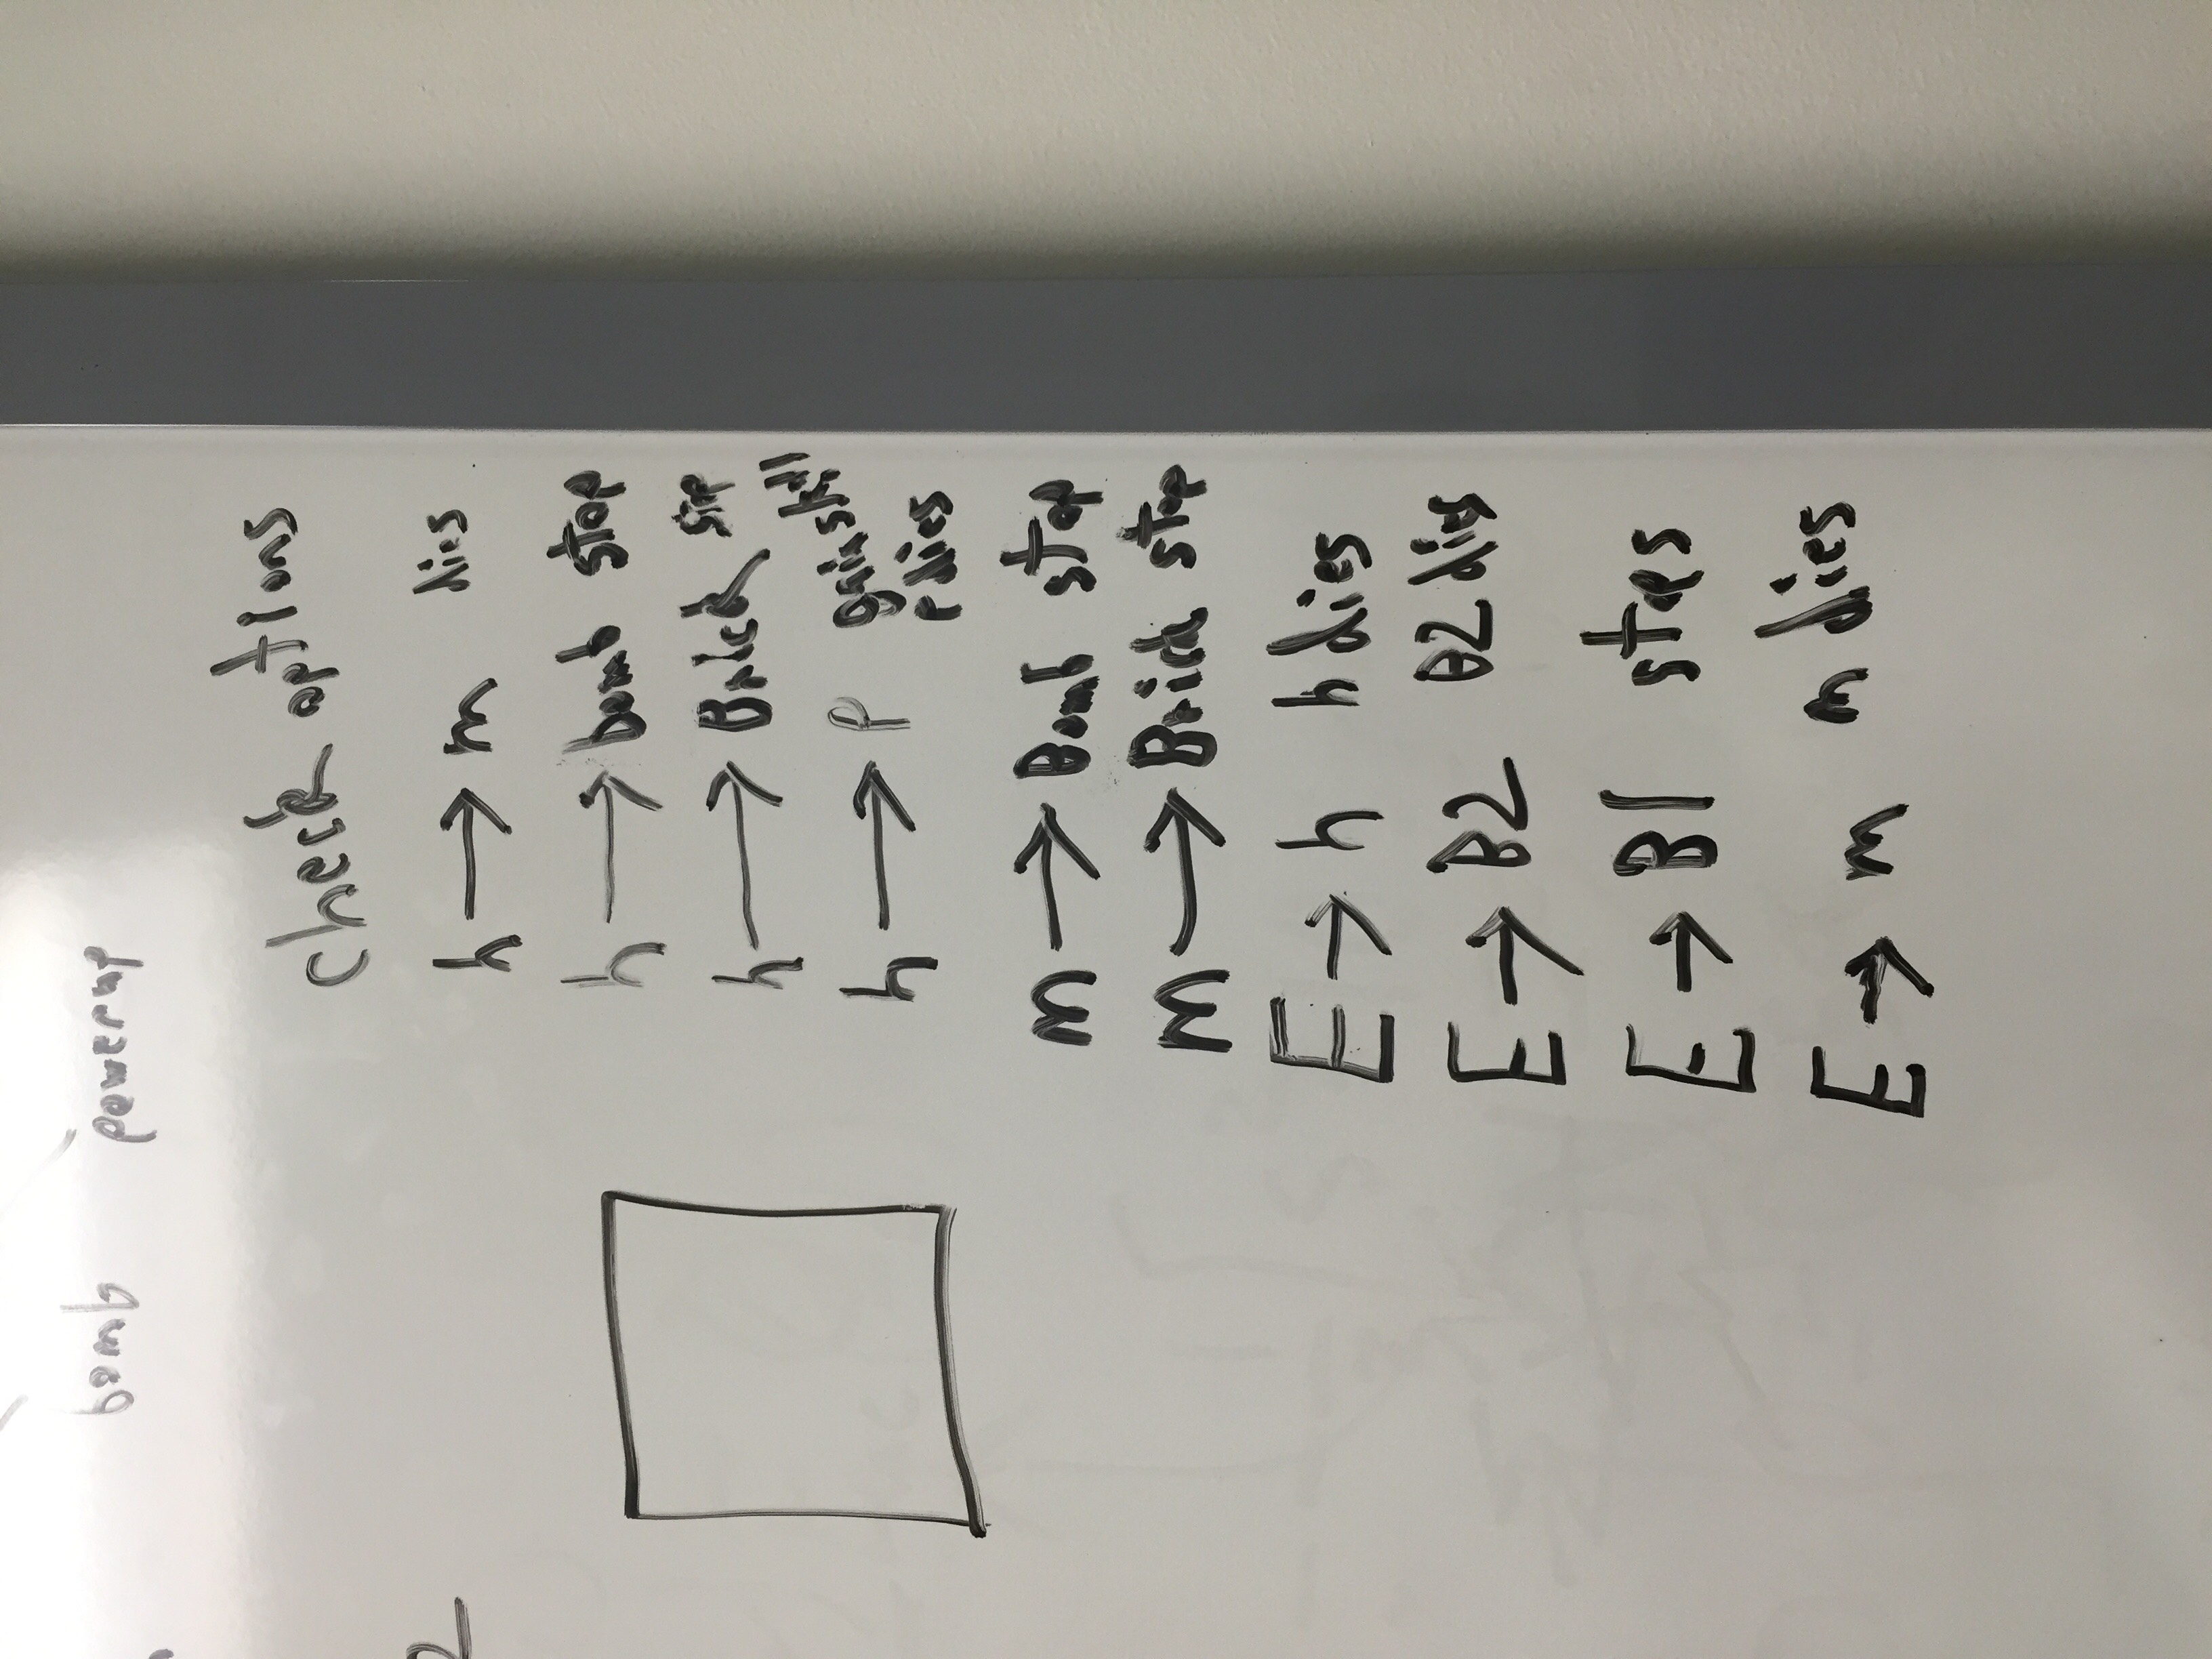 bomb powerup
check options
2
h → m dies
h → bomb stop
h → Brick stp
h → P gain skill
P dies
m → Bomb stop
m → Brick stop
E → h h dies
E → B2 B2 dies
E → B1 stops
E → m m dies